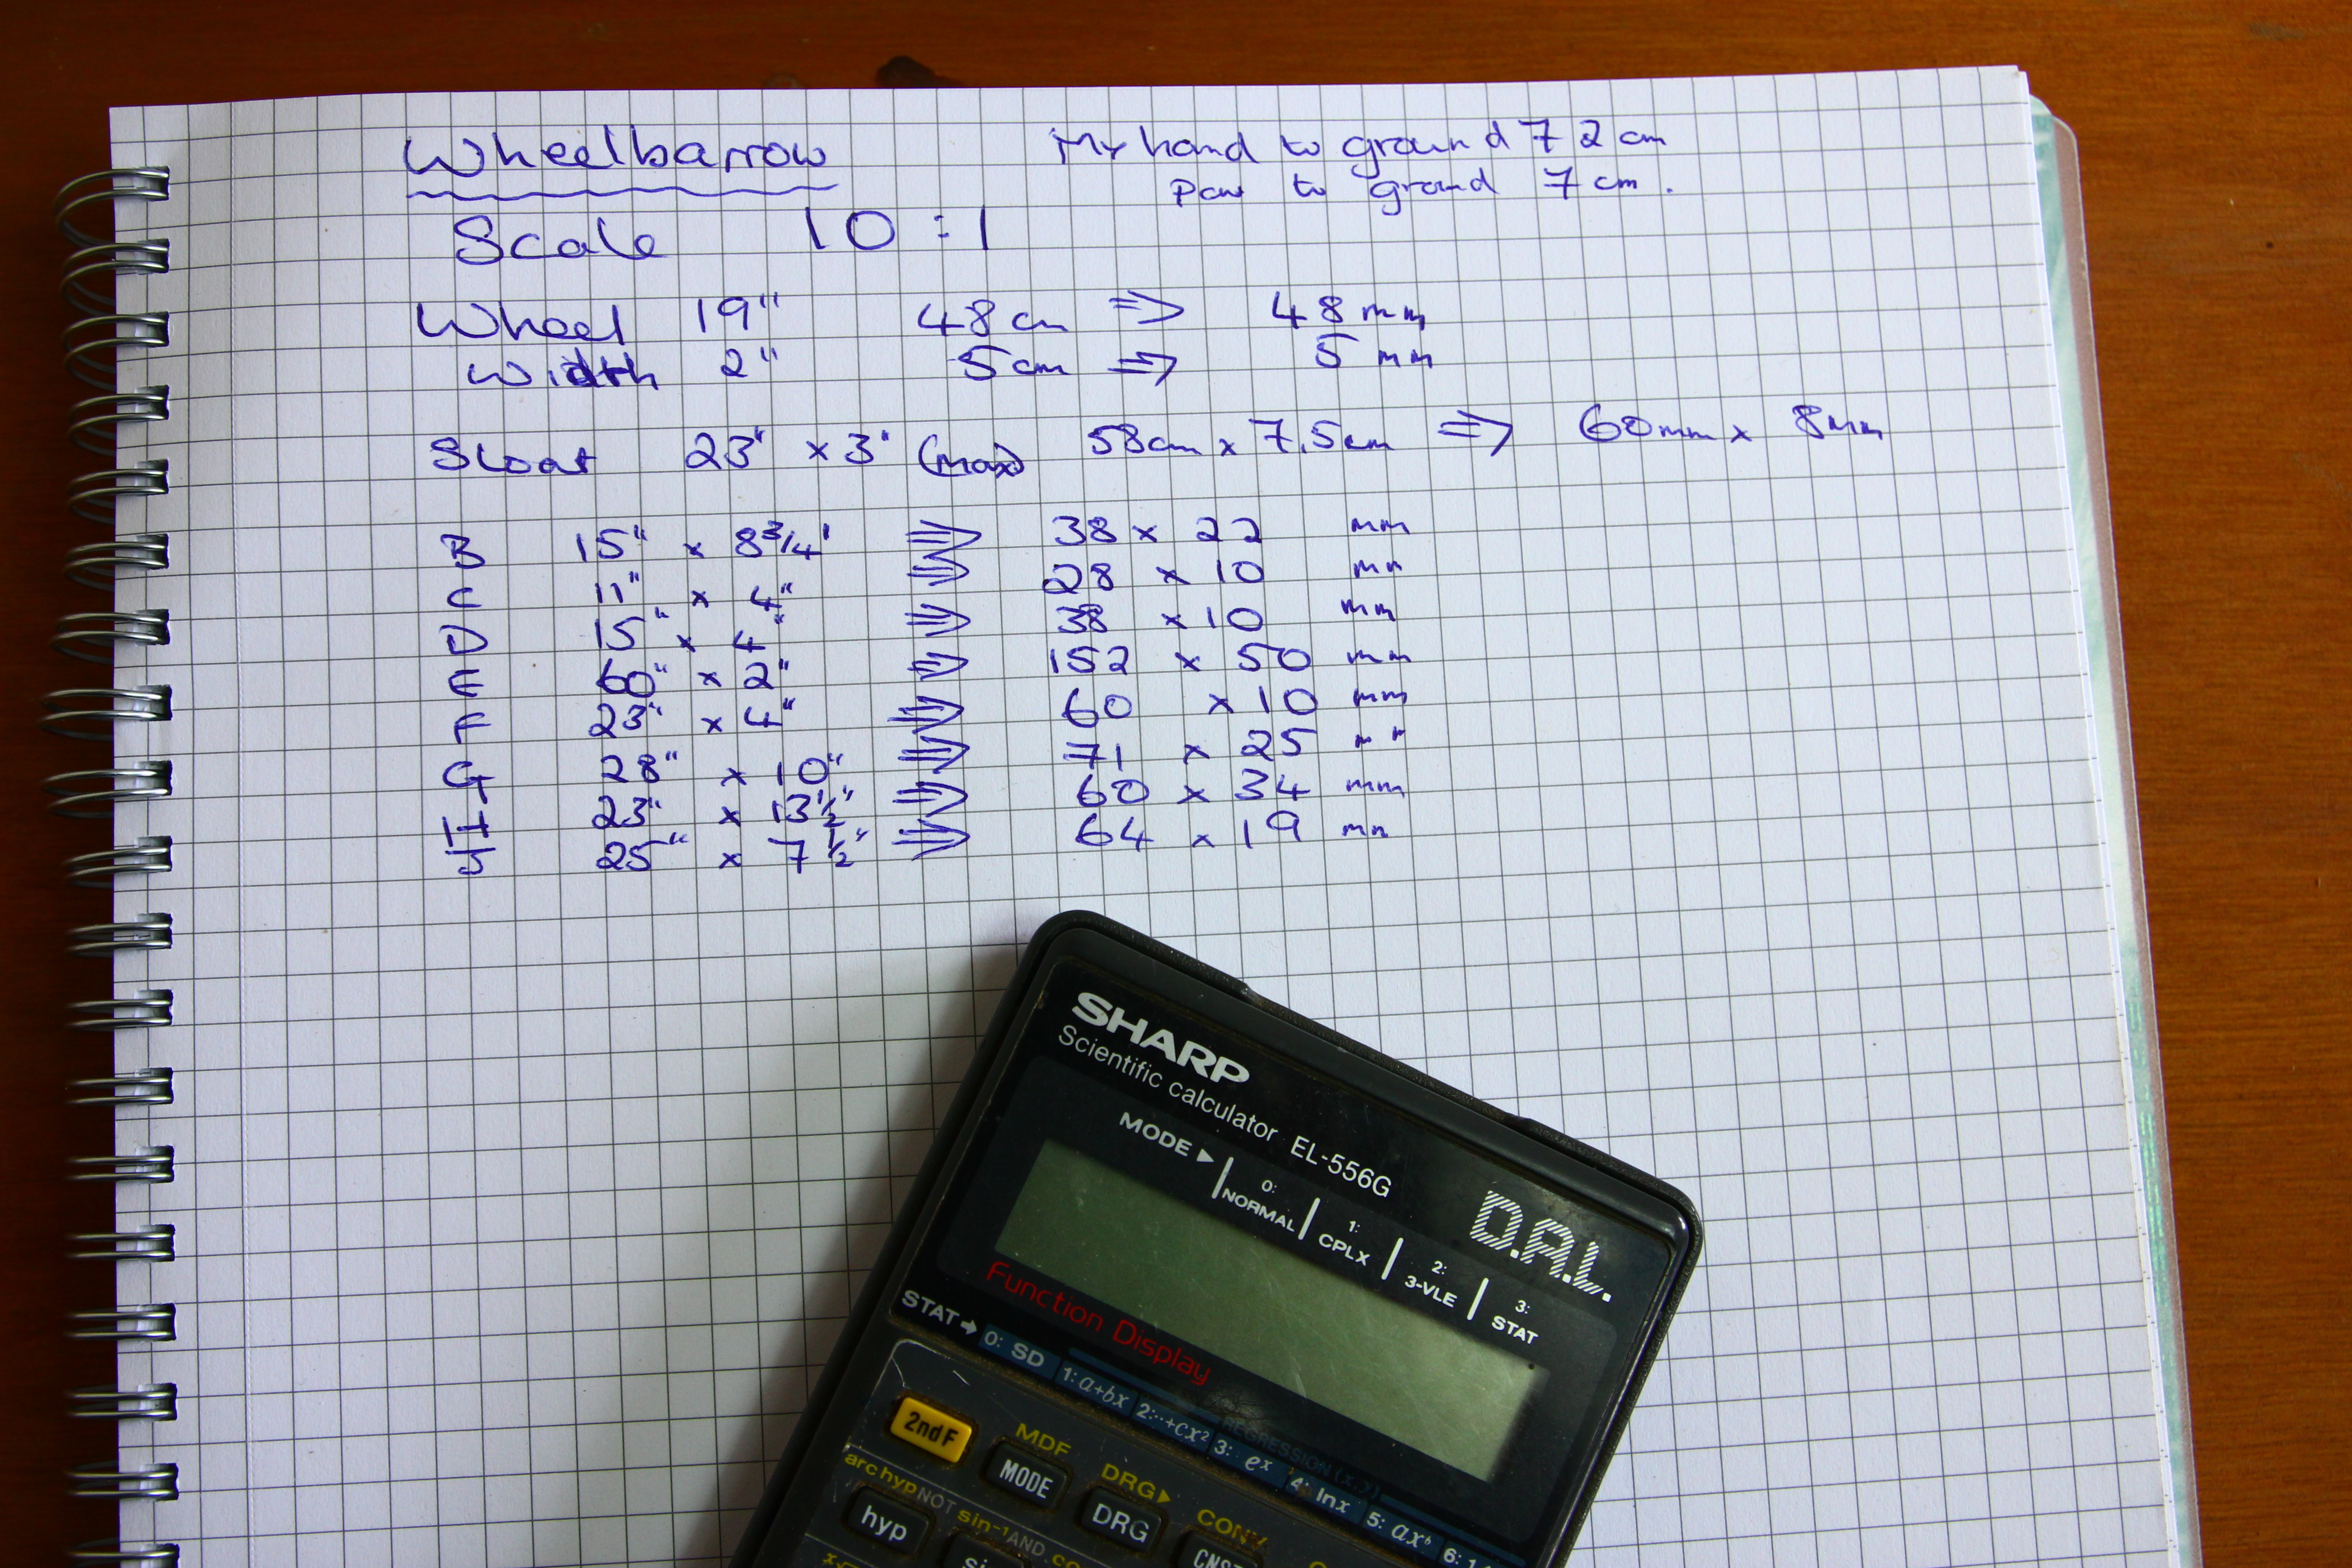 Wheelbarrow
My hand to ground 72 cm
Paw to ground 7 cm.
Scale 10 : 1
Wheel 19" 48 cm ⇒ 48 mm
Width 2" 5 cm ⇒ 5 mm
Sloat 23" x 3" (max) 58cm x 7.5cm ⇒ 60mm x 8mm
B 15" x 8 3/4" ⇒ 38 x 22 mm
C 11" x 4" ⇒ 28 x 10 mm
D 15" x 4" ⇒ 38 x 10 mm
E 60" x 2" ⇒ 152 x 50 mm
F 23" x 4" ⇒ 60 x 10 mm
G 28" x 10" ⇒ 71 x 25 mm
H 23" x 13 1/2" ⇒ 60 x 34 mm
J 25" x 7 1/2" ⇒ 64 x 19 mm
SHARP
Scientific calculator EL-556G
D.A.L.
MODE ▶ 0: NORMAL 1: CPLX 2: 3-VLE 3: STAT
Function Display
STAT ➔ 0: SD 1: a+bx 2: ··+cx² 3: eˣ 4: lnx 5: axᵇ 6: 1
REGRESSION (x,y)
2nd F
MDF
MODE
DRG▶
DRG
CONV
arc hyp NOT sin⁻¹ AND
hyp